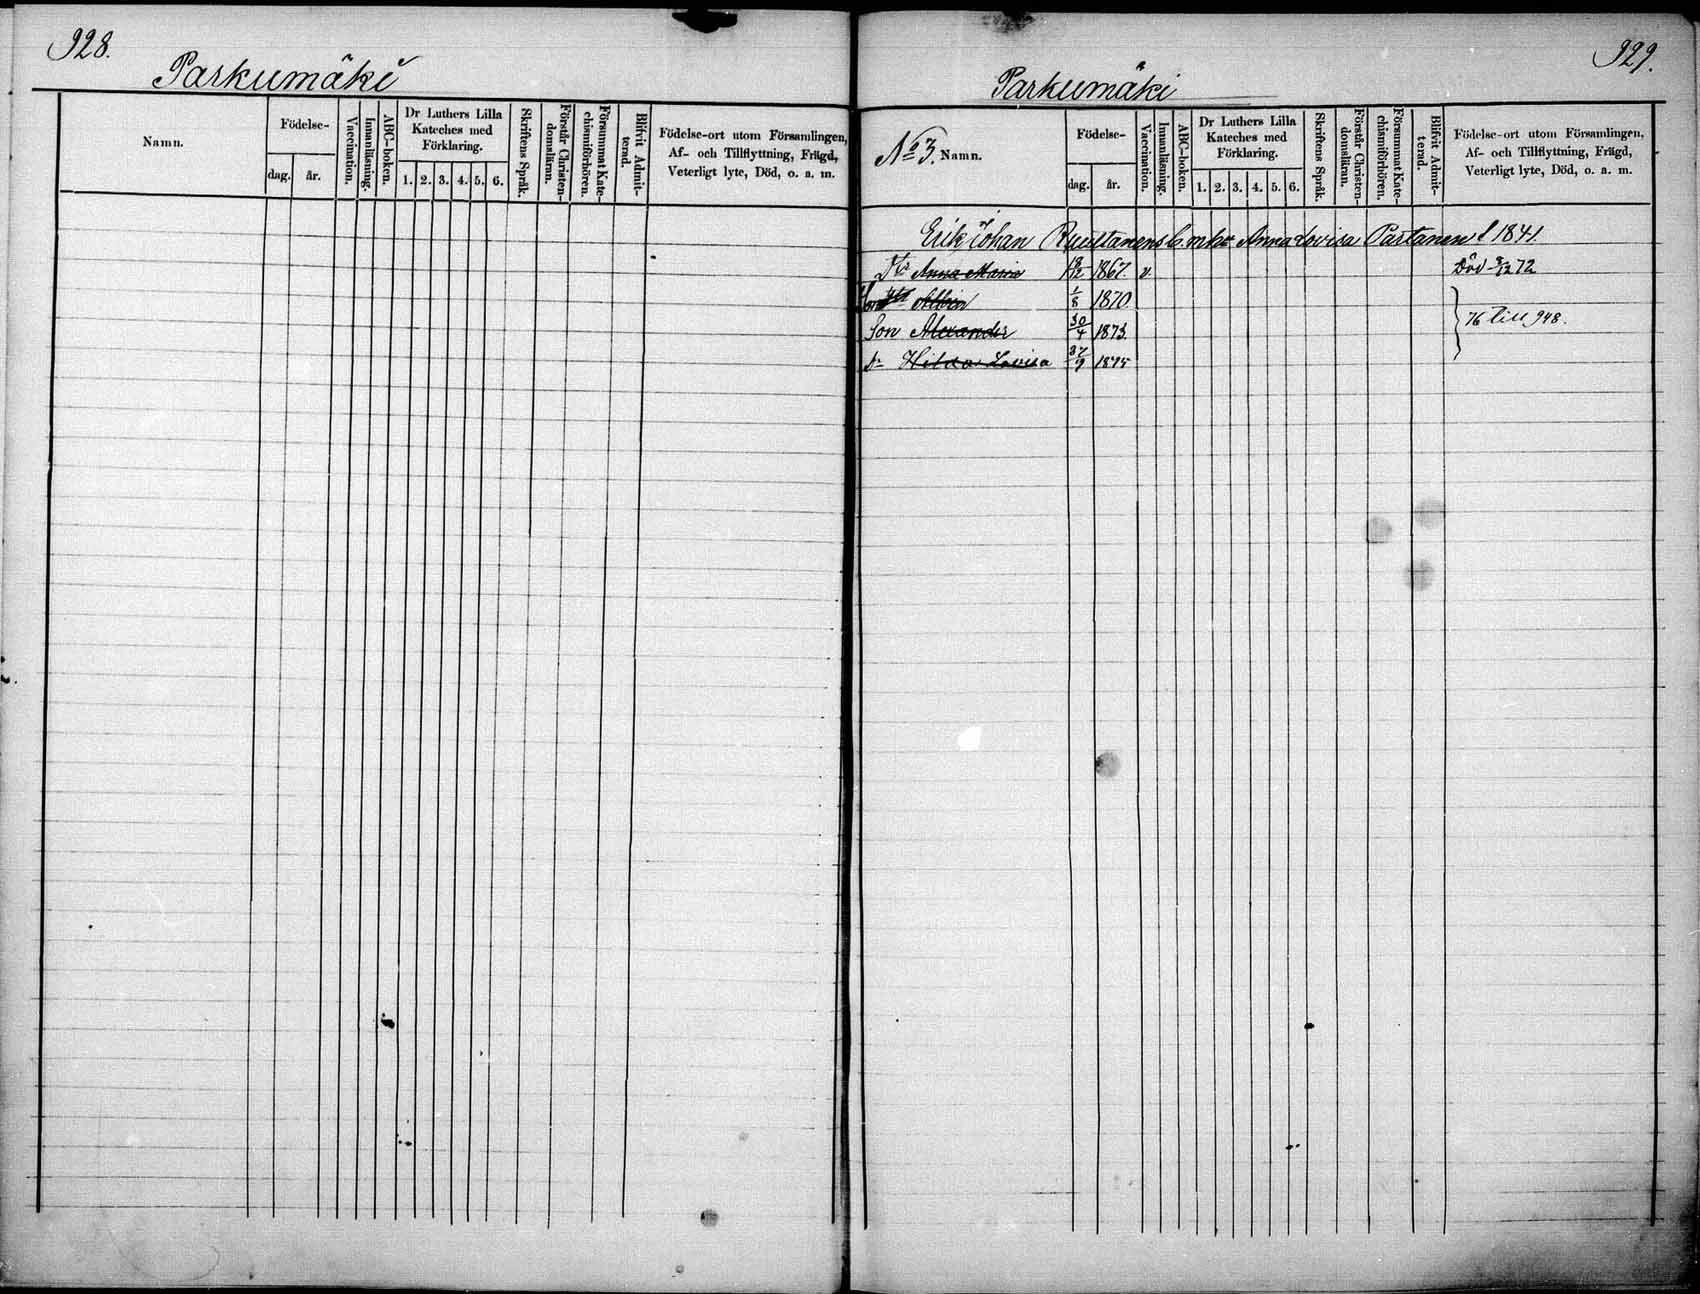 928.
Parkumäki
Namn.
Födelse-
dag.
år.
Vaccination.
Innanläsning.
ABC-boken.
Dr Luthers Lilla
Kateches med
Förklaring.
1. 2. 3. 4. 5. 6.
Skriftens Språk.
Förstår Christen-
domsläran.
Försummat Kate-
chismiförhören.
Blifvit Admit-
terad.
Födelse-ort utom Församlingen,
Af- och Tillflyttning, Frägd,
Veterligt lyte, Död, o. a. m.
929.
Parkumäki
No 3. Namn.
Födelse-
dag.
år.
Vaccination.
Innanläsning.
ABC-boken.
Dr Luthers Lilla
Kateches med
Förklaring.
1. 2. 3. 4. 5. 6.
Skriftens Språk.
Förstår Christen-
domsläran.
Försummat Kate-
chismiförhören.
Blifvit Admit-
terad.
Födelse-ort utom Församlingen,
Af- och Tillflyttning, Frägd,
Veterligt lyte, Död, o. a. m.
Erik Johan Anna Lovisa Partanen 1841.
Anna Maria 1867. v. Död 72
Albin 1/8 1870
Son Alexander 30/4 1873. 76 till 948.
Dr Hilda Lovisa 1875